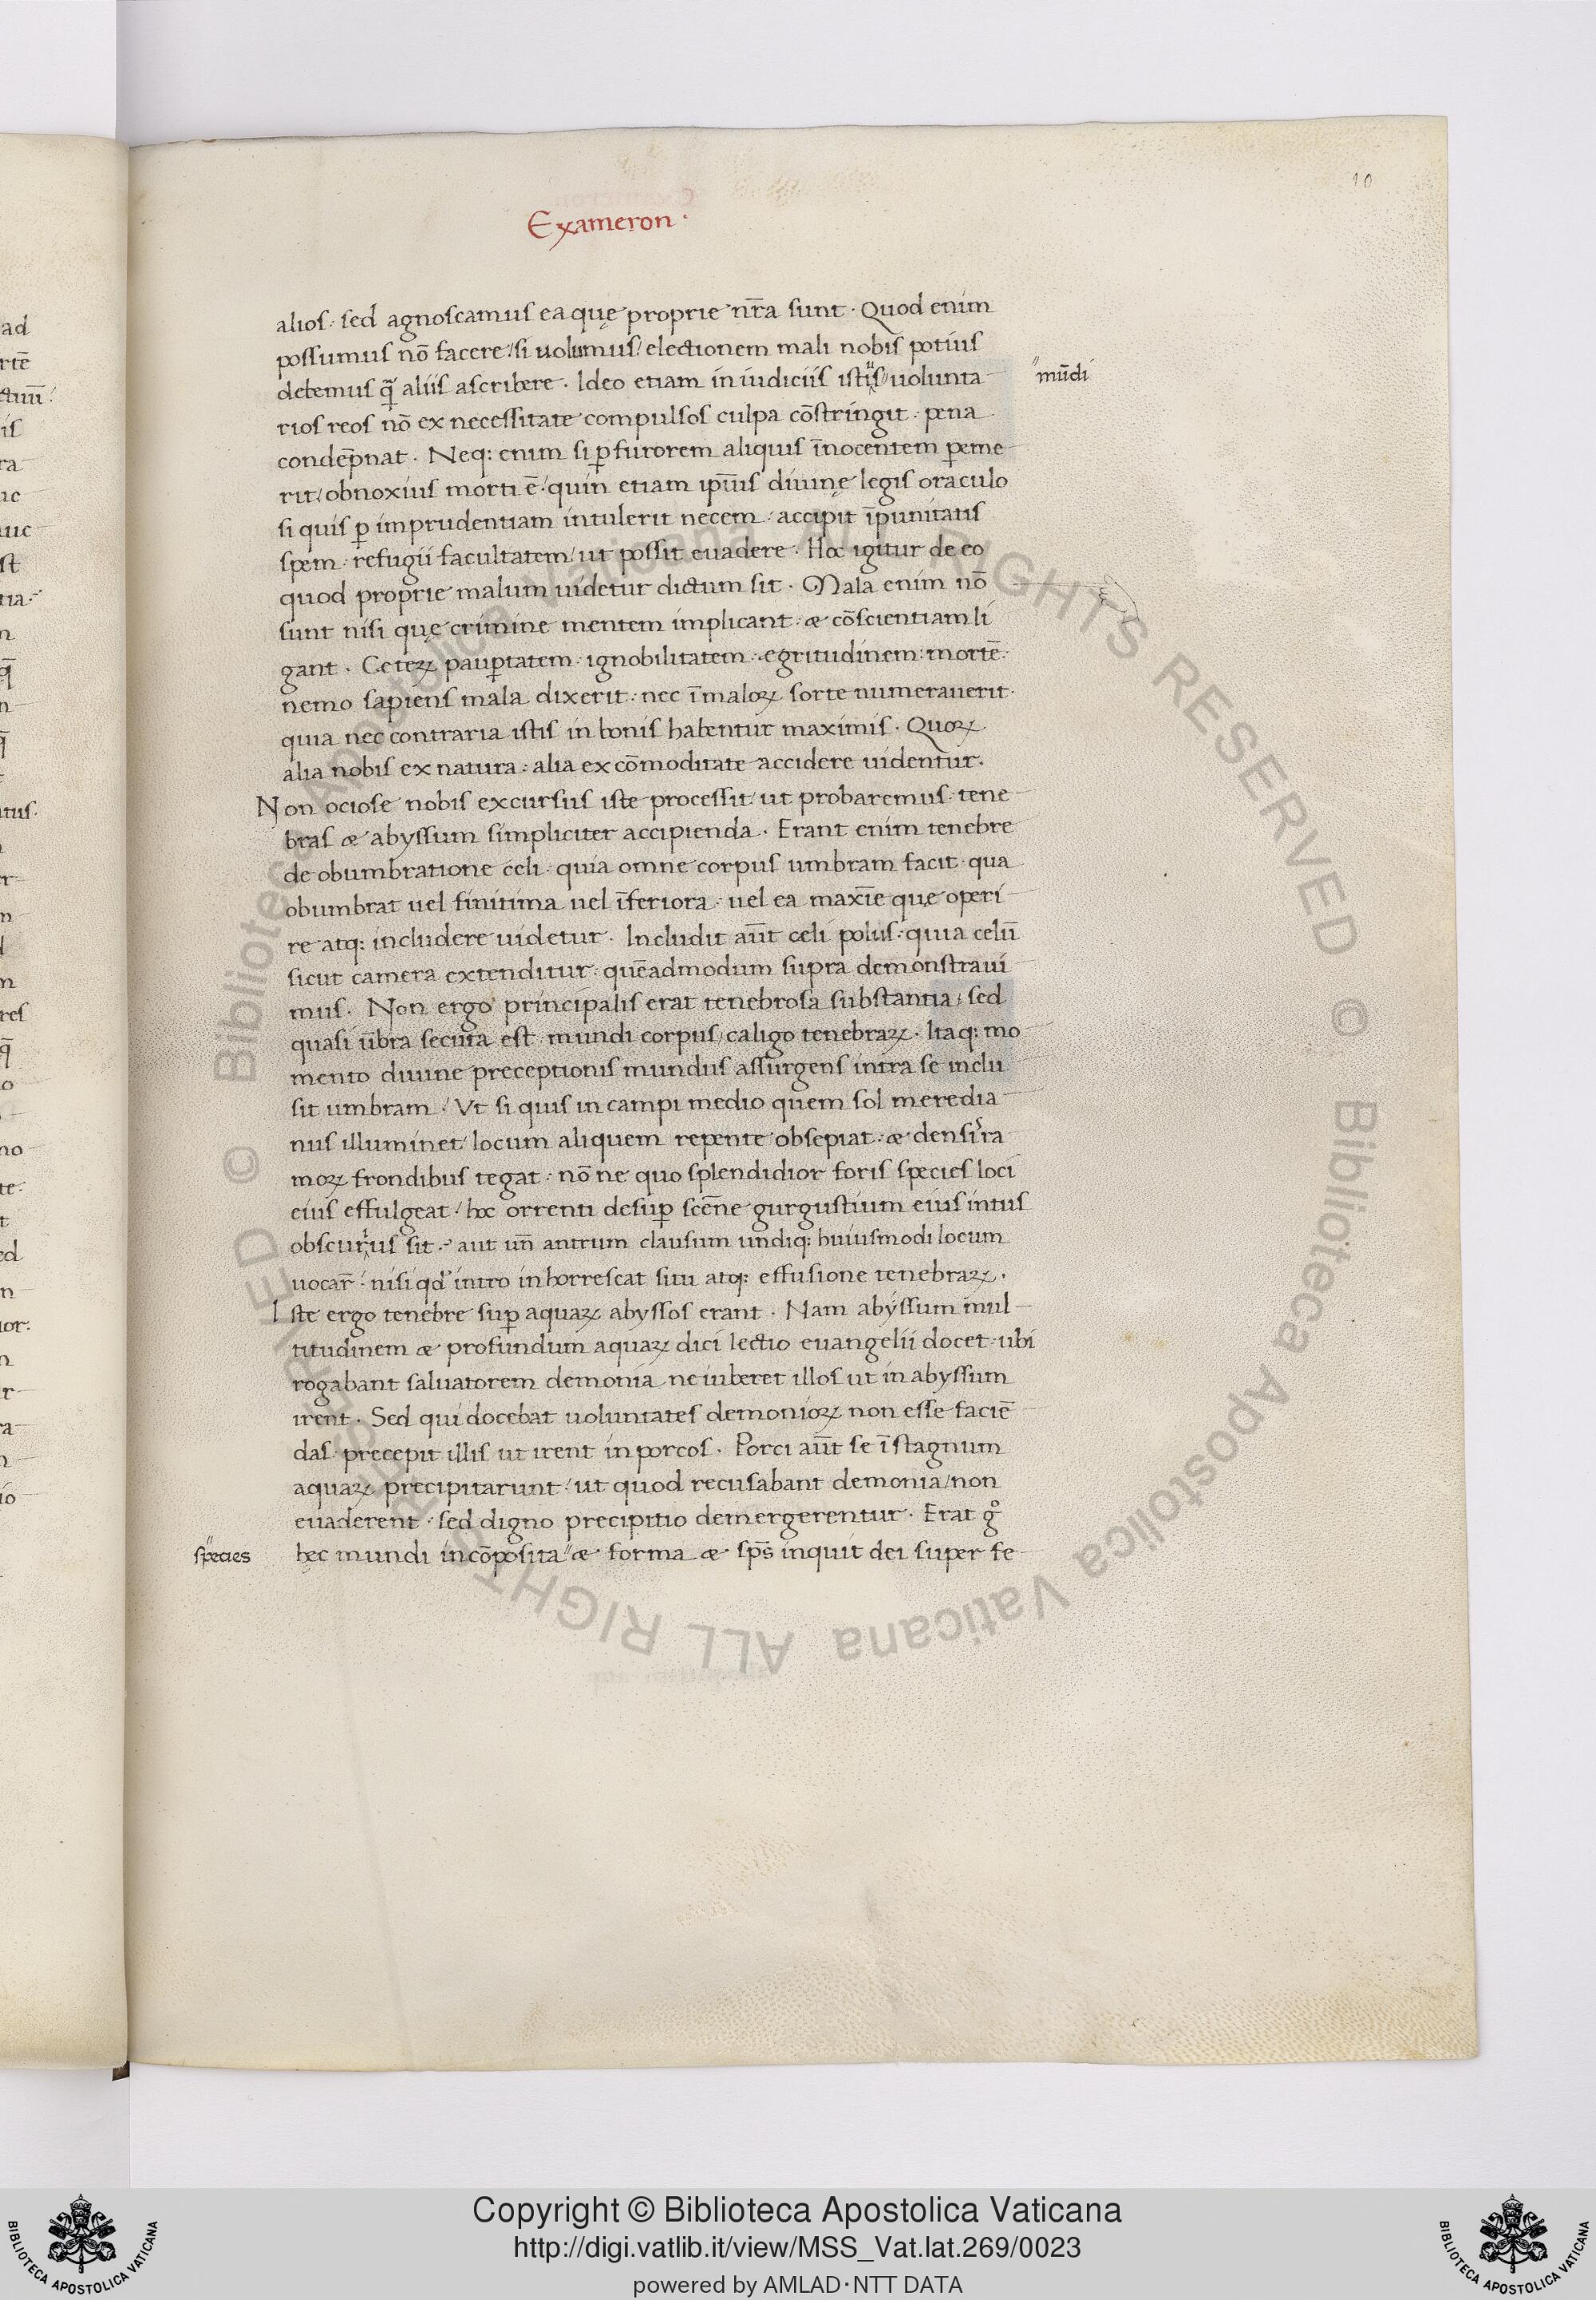 10
Exameron ·
alios : sed agnoscamus ea quę proprie nr̄a sunt · Quod enim
possumus nō facere / si uolumus / electionem mali nobis potius
debemus q̄ aliis ascribere · Ideo etiam in iudiciis istis // uolunta
// mūdi
rios reos nō ex necessitate compulsos culpa cōstringit : pena
condēpnat · Neq: enim si ꝑ furorem aliquis īnocentem ꝑeme
rit / obnoxius morti ē · quin etiam ipīus diuinę legis oraculo
si quis ꝑ imprudentiam intulerit necem : accipit īpunitatis
spem : refugii facultatem / ut possit euadere · Hoc igitur de eo
quod proprie malum uidetur dictum sit · Mala enim nō
sunt nisi quę crimine mentem implicant : & cōscientiam li
gant · Ceteꝝ pauꝑtatem : ignobilitatem : egritudinem : mortē :
nemo sapiens mala dixerit : nec ī maloꝝ sorte numerauerit ·
quia nec contraria istis in bonis habentur maximis · Quoꝝ
alia nobis ex natura : alia ex cōmoditate accidere uidentur ·
Non ociose nobis excursus iste processit / ut probaremus tene
bras & abyssum simpliciter accipienda · Erant enim tenebre
de obumbratione celi · quia omne corpus umbram facit · qua
obumbrat uel finitima uel īferiora : uel ea maxīe quę operi
re atq: includere uidetur · Includit aūt celi polus : quia celū
sicut camera extenditur : quēadmodum supra demonstraui
mus · Non ergo principalis erat tenebrosa substantia : sed
quasi ūbra secuta est mundi corpus / caligo tenebraꝝ · Itaq: mo
mento diuine preceptionis mundus assurgens intra se inclu
sit umbram / Vt si quis in campi medio quem sol meredia
nus illuminet / locum aliquem repente obsepiat : & densis ra
moꝝ frondibus tegat : nō ne quo splendidior foris species loci
eius effulgeat / hoc orrenti desuꝑ scēne gurgustium eius intus
obscurius sit : aut un̄ antrum clausum undiq: huiusmodi locum
uocar̄ : nisi qd' intro inhorrescat situ atq: effusione tenebraꝝ ·
Iste ergo tenebre suꝑ aquaꝝ abyssos erant · Nam abyssum mul
titudinem & profundum aquaꝝ dici lectio euangelii docet · ubi
rogabant saluatorem demonia ne iuberet illos ut in abyssum
irent · Sed qui docebat uoluntates demonioꝝ non esse faciē
das : precepit illis ut irent in porcos · Porci aūt se ī stagnum
aquaꝝ precipitarunt / ut quod recusabant demonia / non
euaderent · sed digno precipitio demergerentur · Erat gͦ
// species
hęc mundi incōposita // & forma & sp̄s inquit dei super fe